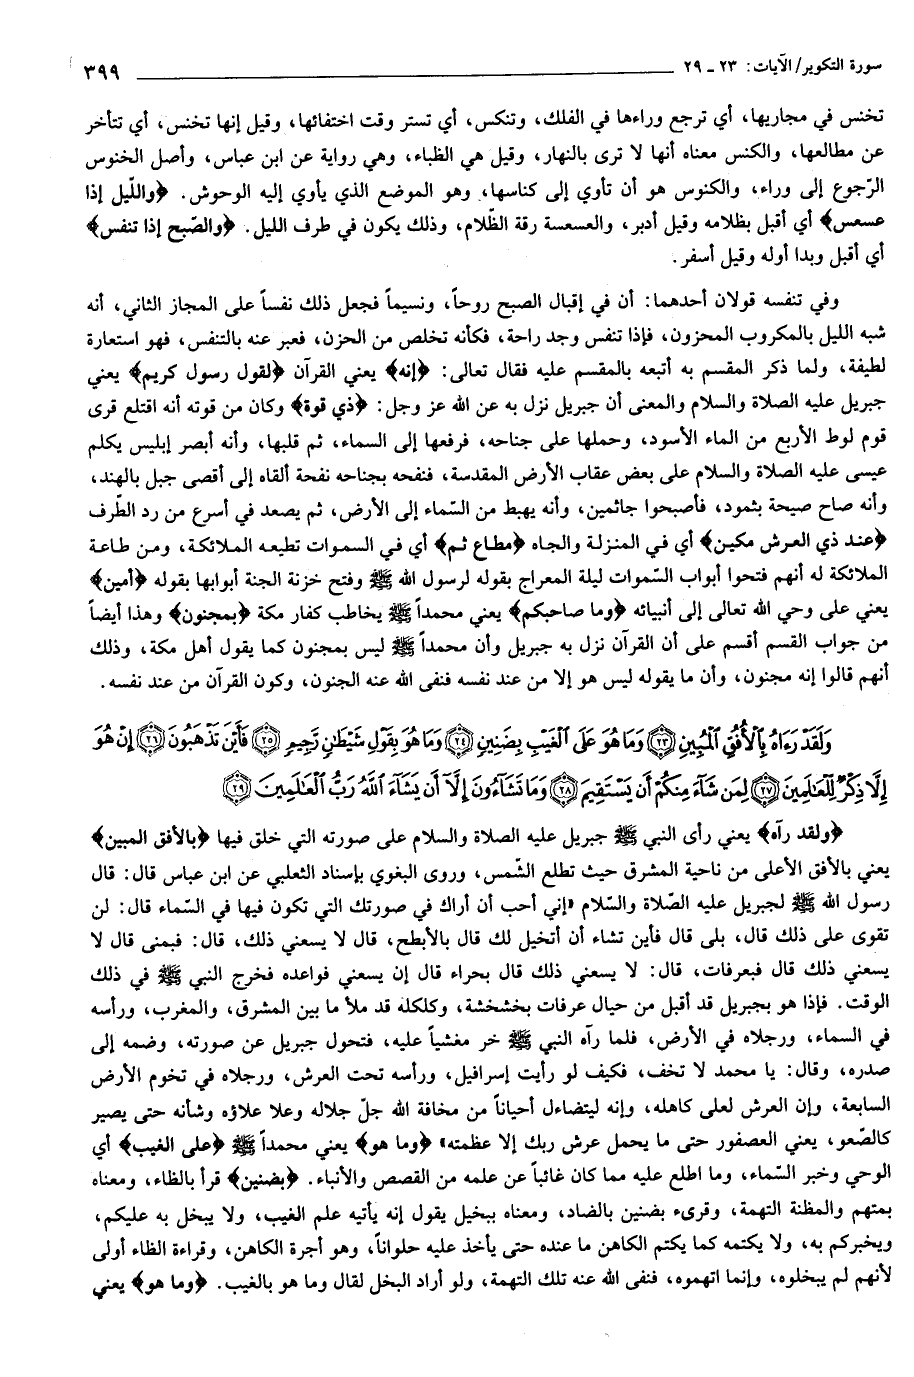 سورة التكوير/ الآيات: ٢٣ ـ ٢٩ ٣٩٩
تخنس في مجاريها، أي ترجع وراءها في الفلك، وتنكس، أي تستر وقت اختفائها، وقيل إنها تخنس، أي تتأخر
عن مطالعها، والكنس معناه أنها لا ترى بالنهار، وقيل هي الظباء، وهي رواية عن ابن عباس، وأصل الخنوس
الرّجوع إلى وراء، والكنوس هو أن تأوي إلى كناسها، وهو الموضع الذي يأوي إليه الوحوش. ﴿واللّيل إذا
عسعس﴾ أي أقبل بظلامه وقيل أدبر، والعسعسة رقة الظّلام، وذلك يكون في طرف الليل. ﴿والصّبح إذا تنفس﴾
أي أقبل وبدا أوله وقيل أسفر.
وفي تنفسه قولان أحدهما: أن في إقبال الصبح روحاً، ونسيماً فجعل ذلك نفساً على المجاز الثاني، أنه
شبه الليل بالمكروب المحزون، فإذا تنفس وجد راحة، فكأنه تخلص من الحزن، فعبر عنه بالتنفس، فهو استعارة
لطيفة، ولما ذكر المقسم به أتبعه بالمقسم عليه فقال تعالى: ﴿إنه﴾ يعني القرآن ﴿لقول رسول كريم﴾ يعني
جبريل عليه الصلاة والسلام والمعنى أن جبريل نزل به عن الله عز وجل: ﴿ذي قوة﴾ وكان من قوته أنه اقتلع قرى
قوم لوط الأربع من الماء الأسود، وحملها على جناحه، فرفعها إلى السماء، ثم قلبها، وأنه أبصر إبليس يكلم
عيسى عليه الصلاة والسلام على بعض عقاب الأرض المقدسة، فنفحه بجناحه نفحة ألقاه إلى أقصى جبل بالهند،
وأنه صاح صيحة بثمود، فأصبحوا جاثمين، وأنه يهبط من السّماء إلى الأرض، ثم يصعد في أسرع من رد الطّرف
﴿عند ذي العرش مكين﴾ أي في المنزلة والجاه ﴿مطاع ثم﴾ أي في السموات تطيعه الملائكة، ومن طاعة
الملائكة له أنهم فتحوا أبواب السّموات ليلة المعراج بقوله لرسول الله ﷺ وفتح خزنة الجنة أبوابها بقوله ﴿أمين﴾
يعني على وحي الله تعالى إلى أنبيائه ﴿وما صاحبكم﴾ يعني محمداً ﷺ يخاطب كفار مكة ﴿بمجنون﴾ وهذا أيضاً
من جواب القسم أقسم على أن القرآن نزل به جبريل وأن محمداً ﷺ ليس بمجنون كما يقول أهل مكة، وذلك
أنهم قالوا إنه مجنون، وأن ما يقوله ليس هو إلا من عند نفسه فنفى الله عنه الجنون، وكون القرآن من عند نفسه.
وَلَقَدْ رَءَاهُ بِٱلْأُفُقِ ٱلْمُبِينِ ﴿٢٣﴾ وَمَا هُوَ عَلَى ٱلْغَيْبِ بِضَنِينٍ ﴿٢٤﴾ وَمَا هُوَ بِقَوْلِ شَيْطَٰنٍ رَّجِيمٍ ﴿٢٥﴾ فَأَيْنَ تَذْهَبُونَ ﴿٢٦﴾ إِنْ هُوَ
إِلَّا ذِكْرٌ لِّلْعَٰلَمِينَ ﴿٢٧﴾ لِمَن شَآءَ مِنكُمْ أَن يَسْتَقِيمَ ﴿٢٨﴾ وَمَا تَشَآءُونَ إِلَّآ أَن يَشَآءَ ٱللَّهُ رَبُّ ٱلْعَٰلَمِينَ ﴿٢٩﴾
﴿ولقد رآه﴾ يعني رأى النبي ﷺ جبريل عليه الصلاة والسلام على صورته التي خلق فيها ﴿بالأفق المبين﴾
يعني بالأفق الأعلى من ناحية المشرق حيث تطلع الشّمس، وروى البغوي بإسناد الثعلبي عن ابن عباس قال: قال
رسول الله ﷺ لجبريل عليه الصّلاة والسّلام «إني أحب أن أراك في صورتك التي تكون فيها في السّماء قال: لن
تقوى على ذلك قال، بلى قال فأين تشاء أن أتخيل لك قال بالأبطح، قال لا يسعني ذلك، قال: فبمنى قال لا
يسعني ذلك قال فبعرفات، قال: لا يسعني ذلك قال بحراء قال إن يسعني فواعده فخرج النبي ﷺ في ذلك
الوقت. فإذا هو بجبريل قد أقبل من حيال عرفات بخشخشة، وكلكله قد ملأ ما بين المشرق، والمغرب، ورأسه
في السماء، ورجلاه في الأرض، فلما رآه النبي ﷺ خر مغشياً عليه، فتحول جبريل عن صورته، وضمه إلى
صدره، وقال: يا محمد لا تخف، فكيف لو رأيت إسرافيل، ورأسه تحت العرش، ورجلاه في تخوم الأرض
السابعة، وإن العرش لعلى كاهله، وإنه ليتضاءل أحياناً من مخافة الله جلّ جلاله وعلا علاؤه وشأنه حتى يصير
كالصّعو، يعني العصفور حتى ما يحمل عرش ربك إلا عظمته» ﴿وما هو﴾ يعني محمداً ﷺ ﴿على الغيب﴾ أي
الوحي وخبر السّماء، وما اطلع عليه مما كان غائباً عن علمه من القصص والأنباء. ﴿بضنين﴾ قرأ بالظاء، ومعناه
بمتهم والمظنة التهمة، وقرىء بضنين بالضاد، ومعناه ببخيل يقول إنه يأتيه علم الغيب، ولا يبخل به عليكم،
ويخبركم به، ولا يكتمه كما يكتم الكاهن ما عنده حتى يأخذ عليه حلواناً، وهو أجرة الكاهن، وقراءة الظاء أولى
لأنهم لم يبخلوه، وإنما اتهموه، فنفى الله عنه تلك التهمة، ولو أراد البخل لقال وما هو بالغيب. ﴿وما هو﴾ يعني